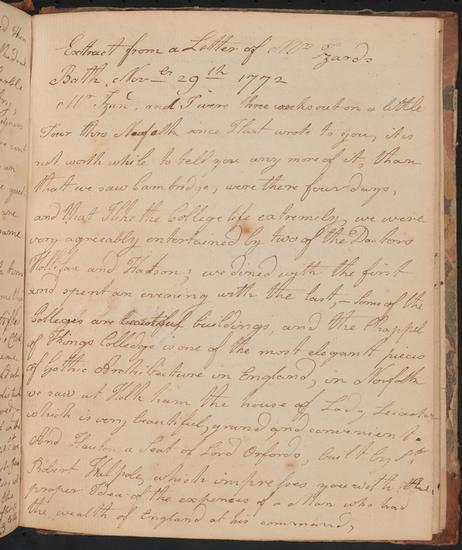 Extract from a Letter of Mrs Izards
Bath Nov-er 29th 1772
Mr Izard, and I were three weeks out on a little
Tour thro Norfolk since I last wrote to you, it is
not worth while to tell you any more of it, than
that we saw Cambridge, were there four days,
and that I like the College life extremely, we were
very agreeably entertained by two of the Doctors
Hallifax and Hudson; we dined wyth the first
and spent an evening with the last, – Some of the
Colleges are beautiful buildings, and the Chappel
of Kings Colledge is one of the most elegant pieces
of Gothic Architecture in England, in Norfolk
we saw at Holk ham the house of Lady Leicester
which is very beautiful, grand and convenient.
And Hauton a Seat of Lord Orfords, built by Sr
Robert Walpole, which impresses you with
proper Idea of the expences of a Man who had
the wealth of England at his command,